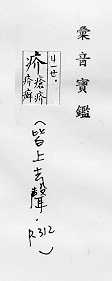 彙音寶鑑
疥
瘡疥
疥癬
(皆上去聲.
P.312)